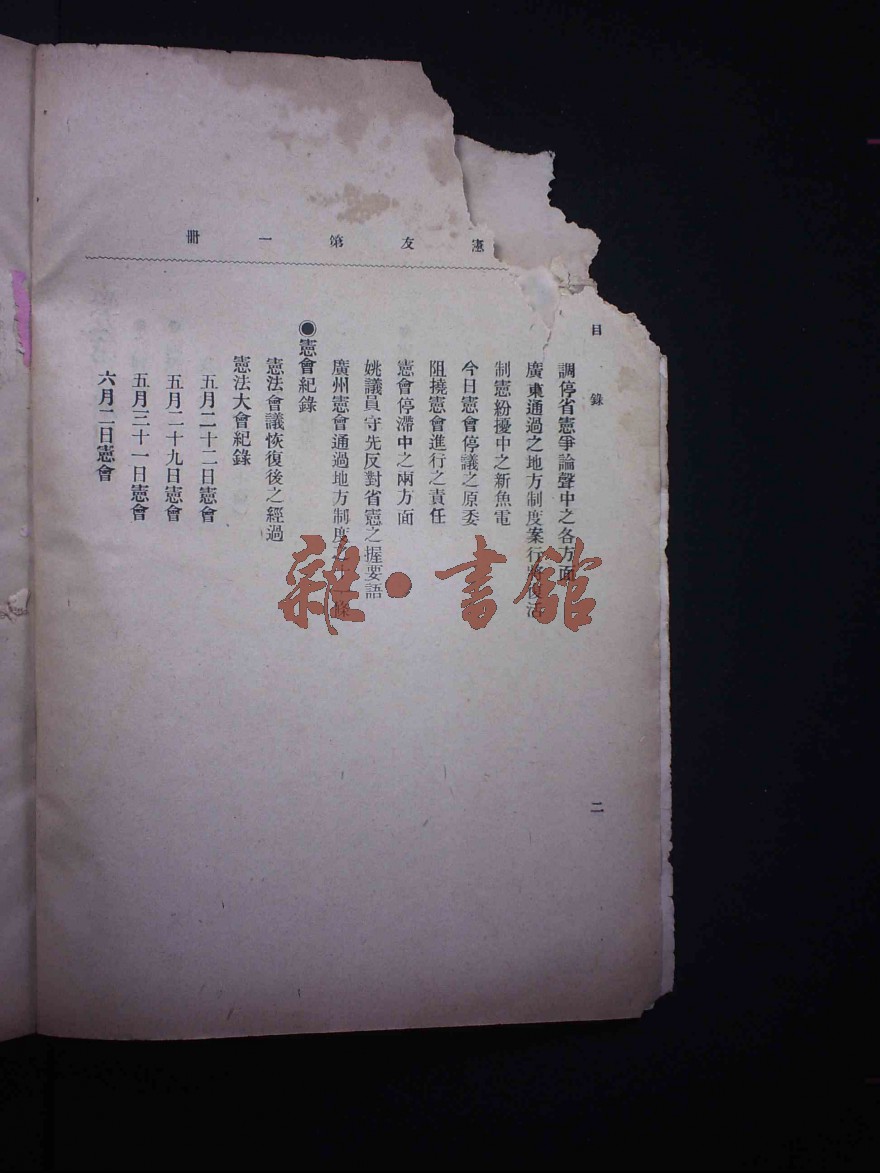 憲友第一冊
目錄
調停省憲爭論聲中之各方面
廣東通過之地方制度案行將復活
制憲紛擾中之新魚電
今日憲會停議之原委
阻撓憲會進行之責任
憲會停滯中之兩方面
姚議員守先反對省憲之握要語
廣州憲會通過地方制度之 條
◉憲會紀錄
憲法會議恢復後之經過
憲法大會紀錄
五月二十二日憲會
五月二十九日憲會
五月三十一日憲會
六月二日憲會
二
雜·書館